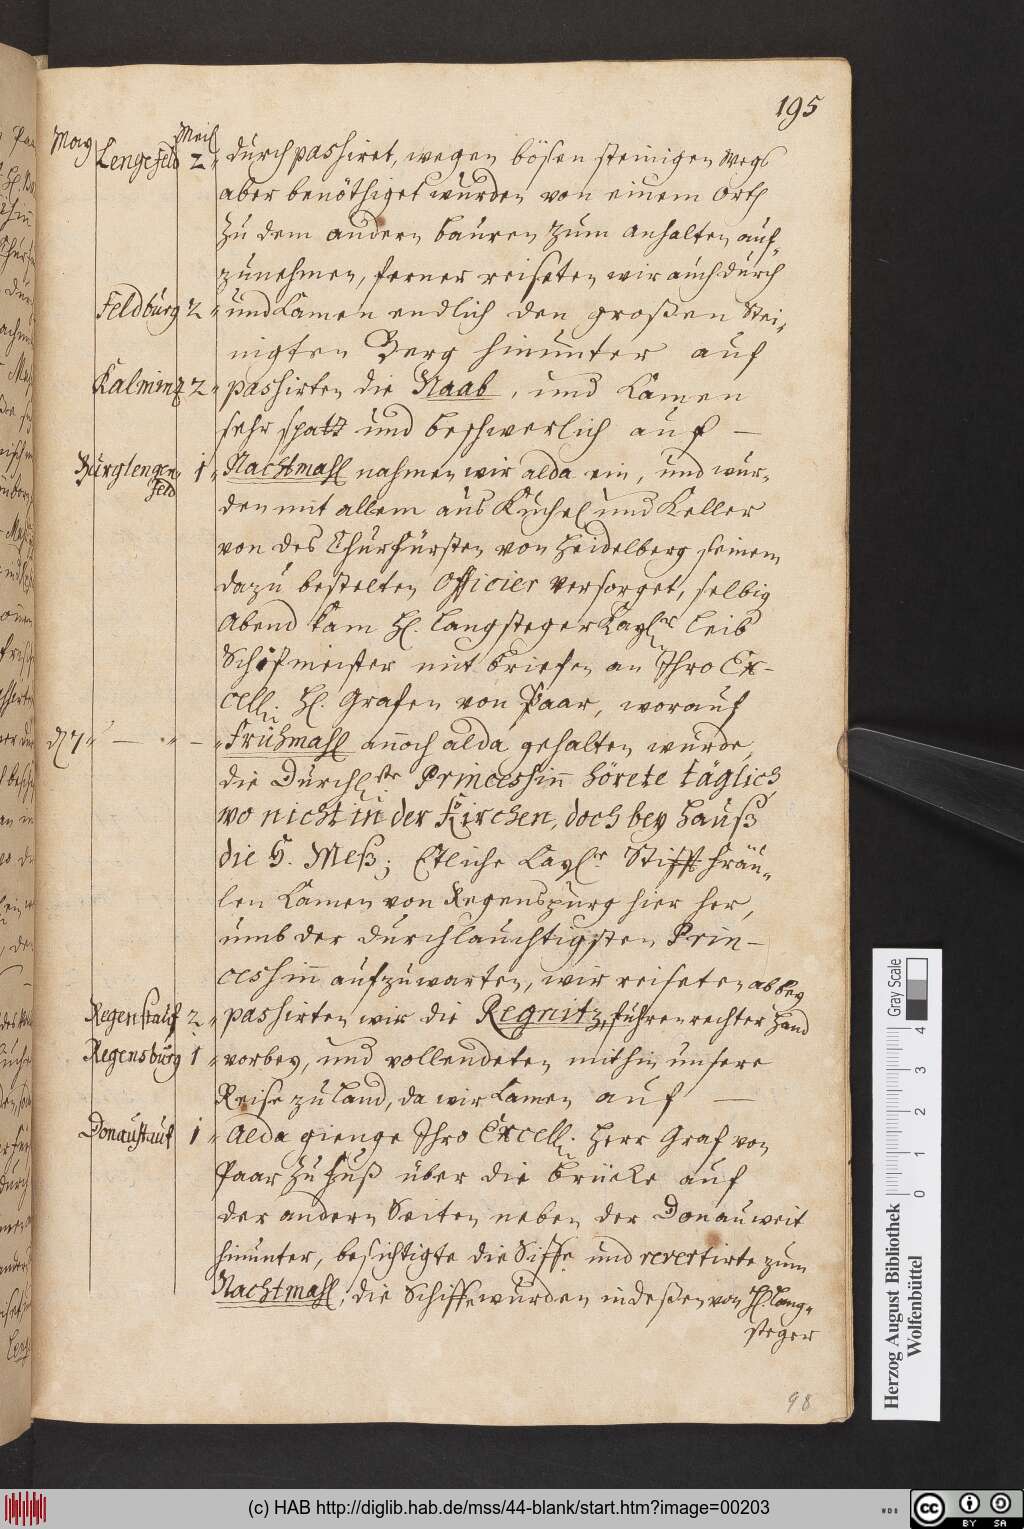 195
May
Meil
Lengefeld 2 „ durch passiret, wegen bösen steinigen Wegs
aber benöthiget wurden von einem Orth
zu dem andern bauren zum Anhalten auf-
zunehmen, ferner reiseten wir auch durch
Feldburg 2 „ und kamen endlich den großen Stei-
nigten Berg hinunter auf
Kalmintz 2 „ passirten die Naab, und kamen
sehr spatt und beschwerlich auf —
Burglengen 1 „ Nachtmahl nahmen wir alda ein, und wur-
feld
den mit allem aus Kuchel und Keller
von des Churfürsten von Heidelberg seinem
dazu bestelten Officier versorget, selbig
Abend kam H. Langsteger Kayl.r Leib
Schifmeister mit briefen an Ihro Ex-
cell. H. Grafen von Paar, worauf
d 7 „ — „ — „ Frühmahl annoch alda gehalten wurde,
die Durchl.ste Princessinn hörete täglich
wo nicht in der Kirchen, doch bey Hauß
die H. Meß; Etliche Kayl.e Stifft Fräu-
len kamen von Regenspurg hier her,
umb der durchlauchtigisten Prin-
cessinn aufzuwarten, wir reiseten ab bey
Regenstauf 2 „ passirten wir die Regnitz, fuhren rechter Hand
Regensburg 1 „ vorbey, und vollendeten mithin unsere
Reise zu Land, da wir kamen auf —
Donaustauf 1 „ Alda gienge Ihro Excell. Herr Graf von
Paar zu Fuß über die brücke auf
der andern Seiten neben der Donau weit
hinunter, besichtigte die Siffe und revertirte zum
Nachtmahl, die Schiffe wurden indeßen von H. Lang-
steger
98
Herzog August Bibliothek
Wolfenbüttel
Gray Scale
0 1 2 3 4
(c) HAB http://diglib.hab.de/mss/44-blank/start.htm?image=00203
WDB
cc BY SA